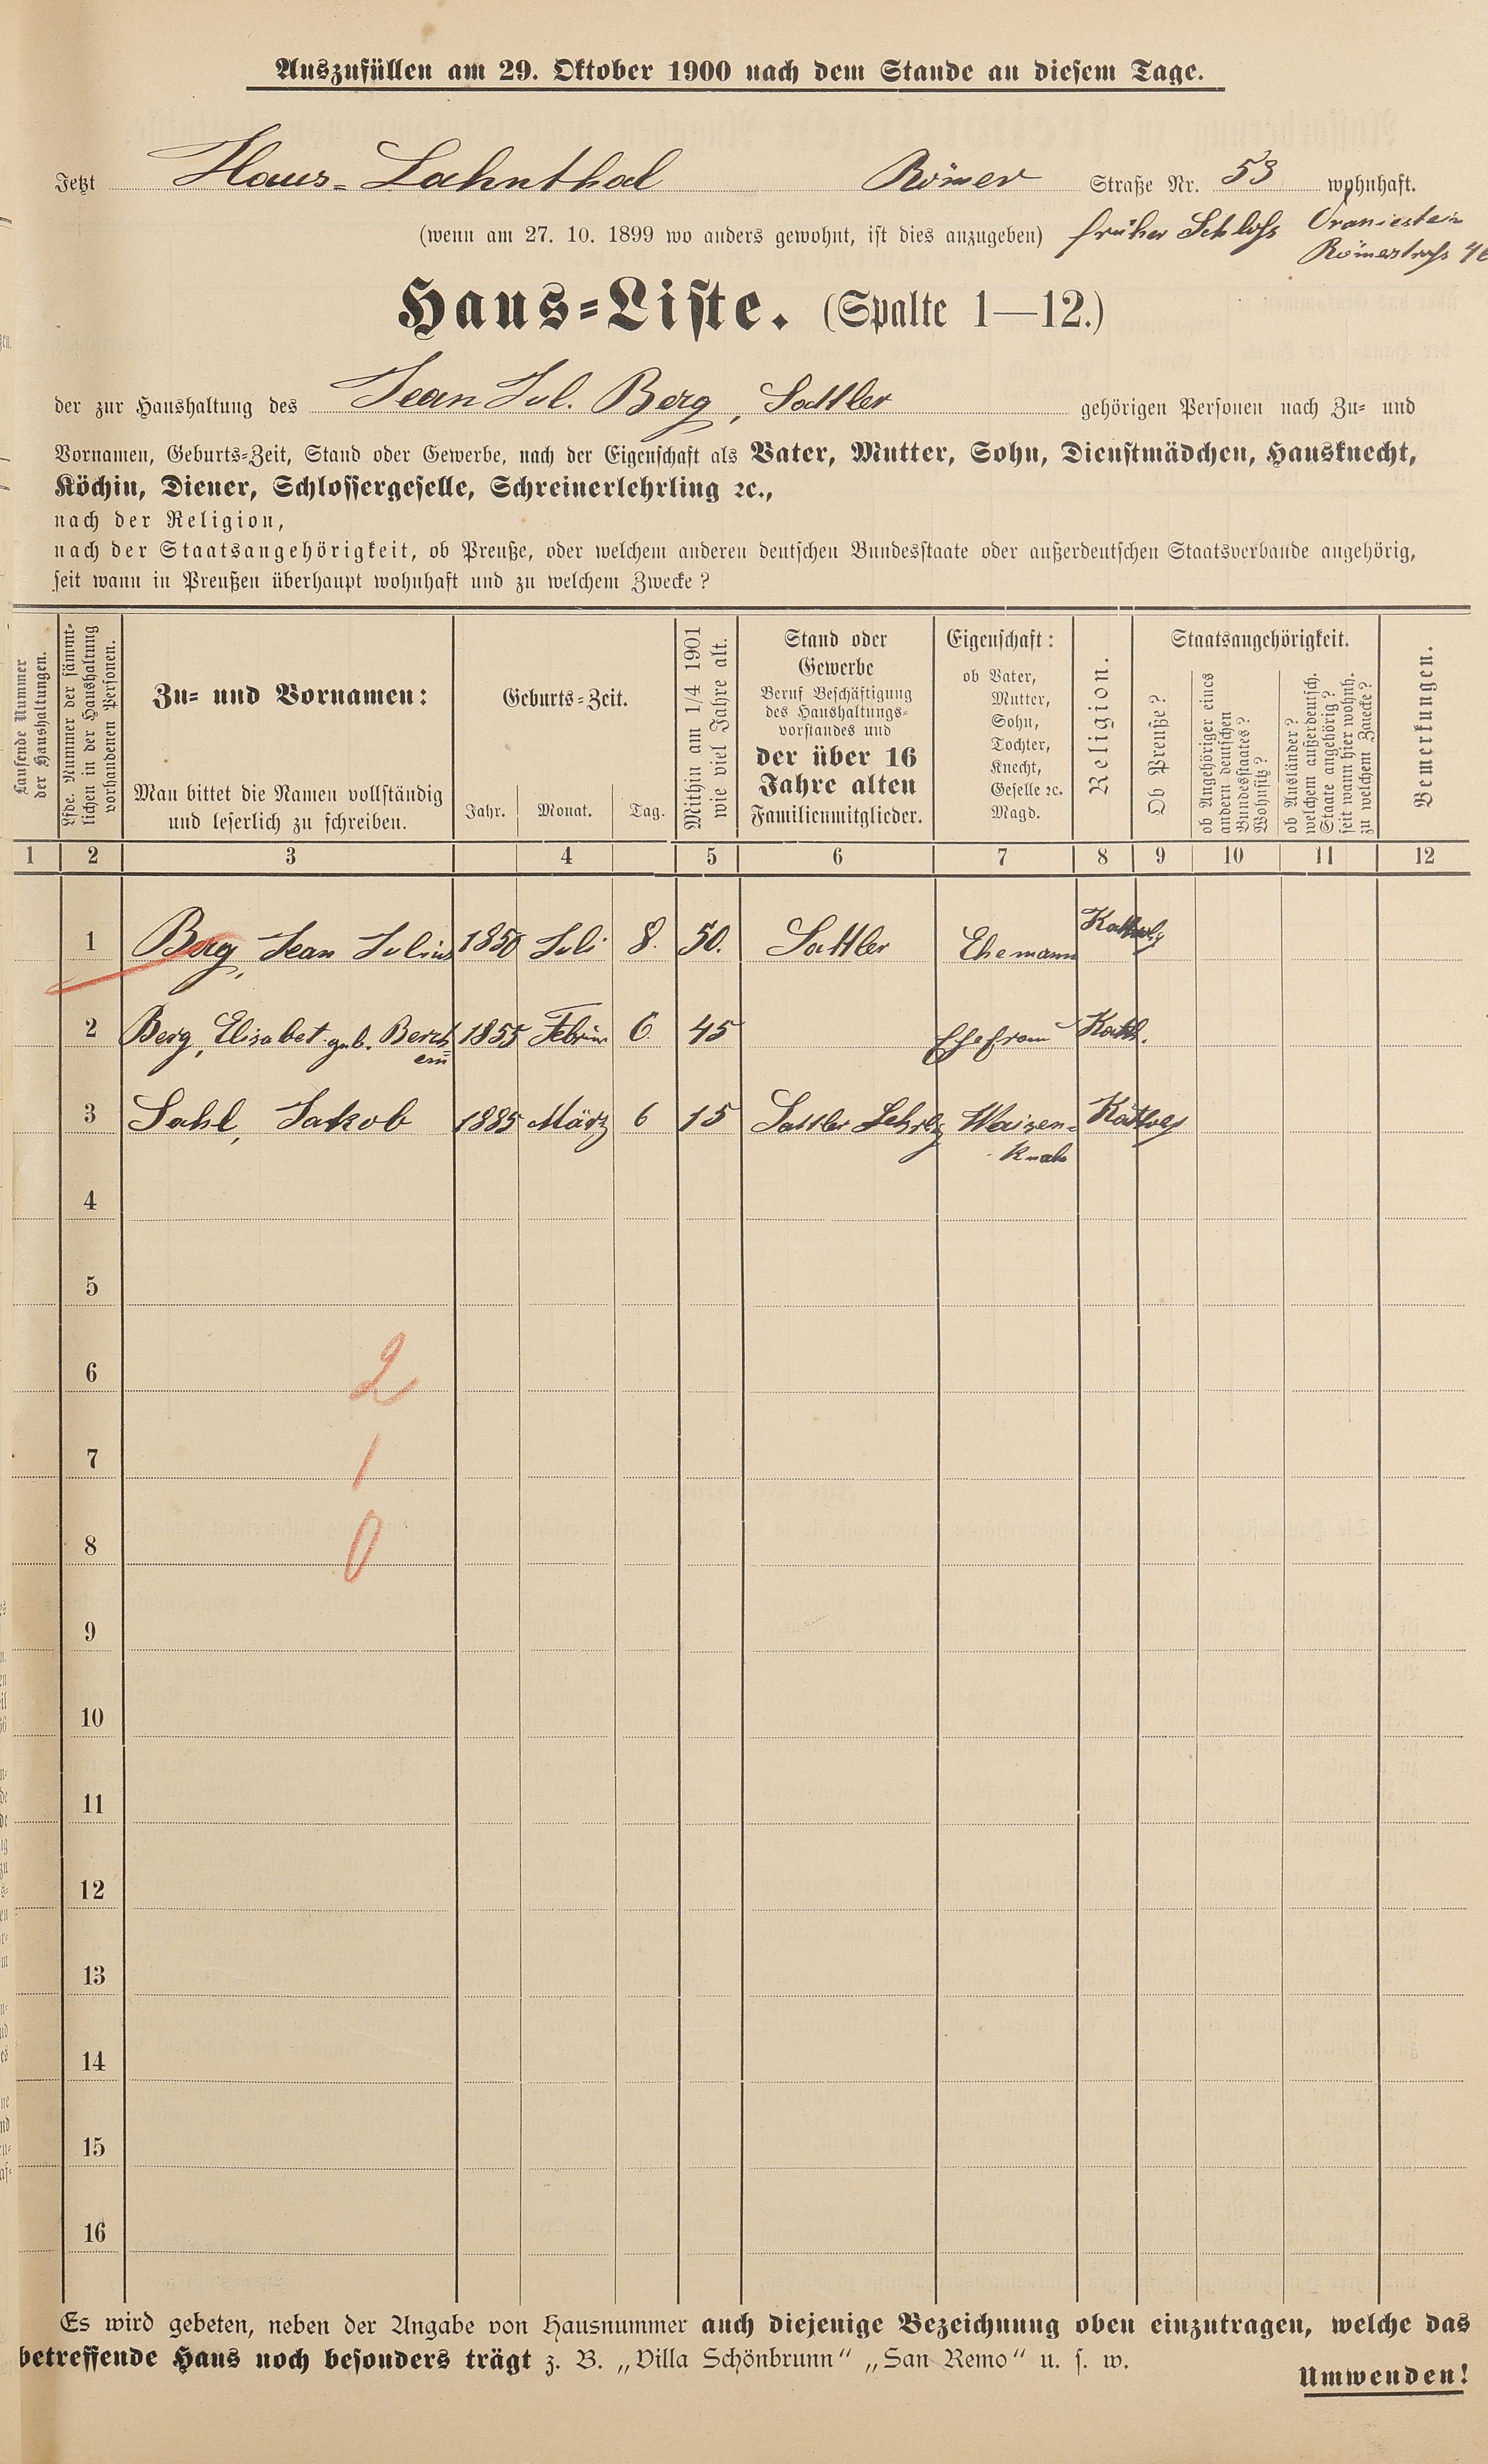 Auszufüllen am 29. Oktober 1900 nach dem Stande an diesem Tage.
Jetzt Haus-Lahnthal Römer Straße Nr. 53 wohnhaft.
(wenn am 27. 10. 1899 wo anders gewohnt, ist dies anzugeben) früher Schloss Oranienstein
Römerstrass
Haus-Liste. (Spalte 1—12.)
der zur Haushaltung des Jean Jul. Berg, Sattler gehörigen Personen nach Zu- und
Vornamen, Geburts-Zeit, Stand oder Gewerbe, nach der Eigenschaft als Vater, Mutter, Sohn, Dienstmädchen, Hausknecht,
Köchin, Diener, Schlossergeselle, Schreinerlehrling ꝛc.,
nach der Religion,
nach der Staatsangehörigkeit, ob Preuße, oder welchem anderen deutschen Bundesstaate oder außerdeutschen Staatsverbande angehörig,
seit wann in Preußen überhaupt wohnhaft und zu welchem Zwecke?
Laufende Nummer
der Haushaltungen.
Lfde. Nummer der sämmt-
lichen in der Haushaltung
vorhandenen Personen.
Zu- und Vornamen:
Man bittet die Namen vollständig
und leserlich zu schreiben.
Geburts-Zeit.
Jahr. Monat. Tag.
Mithin am 1/4 1901
wie viel Jahre alt.
Stand oder
Gewerbe
Beruf Beschäftigung
des Haushaltungs-
vorstandes und
der über 16
Jahre alten
Familienmitglieder.
Eigenschaft:
ob Vater,
Mutter,
Sohn,
Tochter,
Knecht,
Geselle ꝛc.
Magd.
Religion.
Staatsangehörigkeit.
Ob Preuße?
ob Angehöriger eines
andern deutschen
Bundesstaates?
Wohnsitz?
ob Ausländer?
welchem außerdeutsch.
Staate angehörig?
seit wann hier wohnh.
zu welchem Zwecke?
Bemerkungen.
1 2 3 4 5 6 7 8 9 10 11 12
1 Berg, Jean Julius 1850 Juli 8. 50. Sattler Ehemann Katholg
2 Berg, Elisabet geb. 1855 Februar 6. 45 Ehefrau Kath.
3 Sahl, Jakob 1885 März 6 15 Sattler Lehrlg Waisen- Kathol
Knabe
4
5
6 2
7 1
8 0
9
10
11
12
13
14
15
16
Es wird gebeten, neben der Angabe von Hausnummer auch diejenige Bezeichnung oben einzutragen, welche das
betreffende Haus noch besonders trägt z. B. „Villa Schönbrunn“ „San Remo“ u. s. w.
Umwenden!